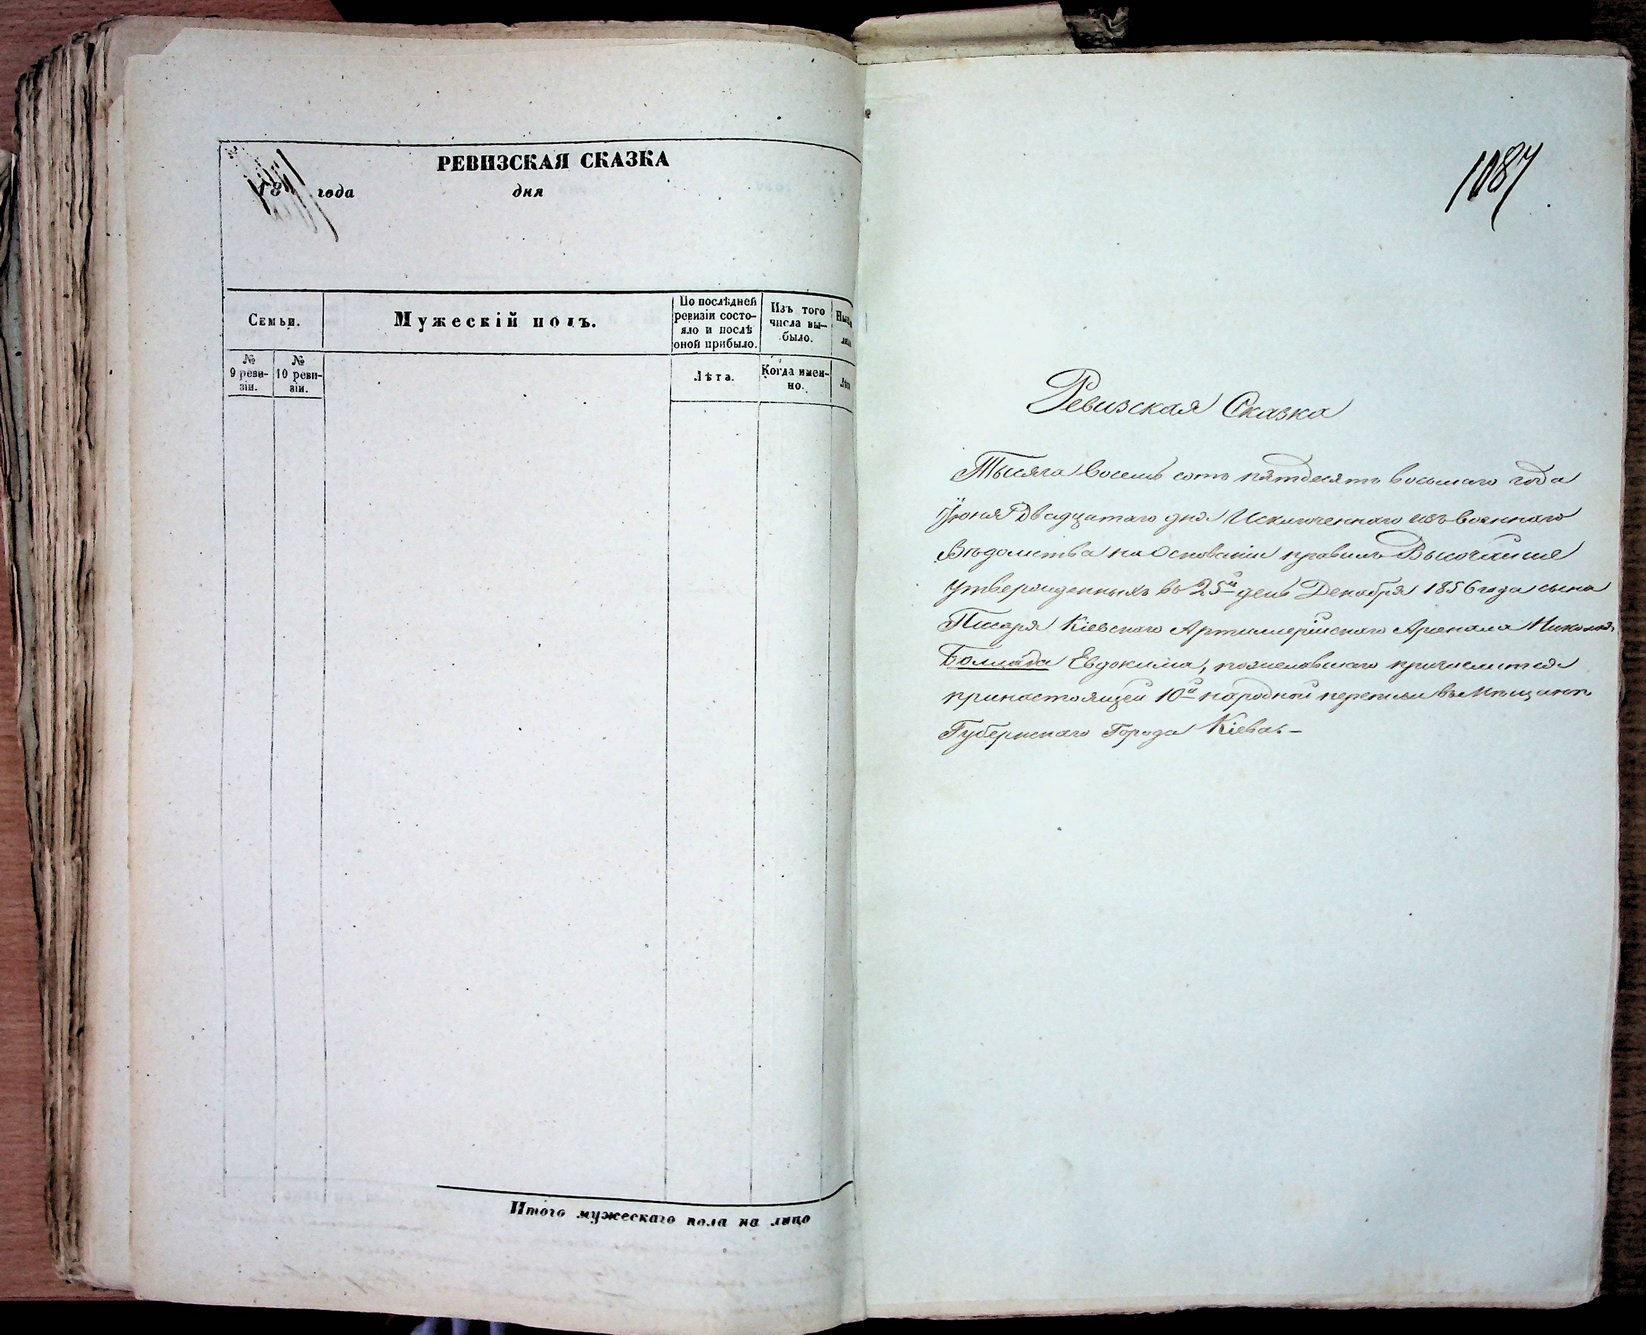 РЕВИЗСКАЯ СКАЗКА
18 года дня
Семьи.
Мужескій полъ.
По послѣдней ревизіи состояло и послѣ оной прибыло.
Изъ того числа выбыло.
№ 9 ревизіи.
№ 10 ревизіи.
Лѣта.
Когда именно.
Итого мужескаго пола на лицо
1087
Ревизская Сказка
Тысяча восемь сотъ пятдесятъ восьмаго года
Іюня Двадцатаго дня Исключеннаго изъ военнаго
Вѣдомства на Основаніи правилъ Высочайше
Утвержденныхъ въ 25й день Декабря 1856 года сына
Писаря Кіевского Артиллерійского Арсенала Николая
Евдокима, пожелавшаго причислится
принастоящей 10й народной переписи въ Мѣщане
Губернскаго Города Кіева.—